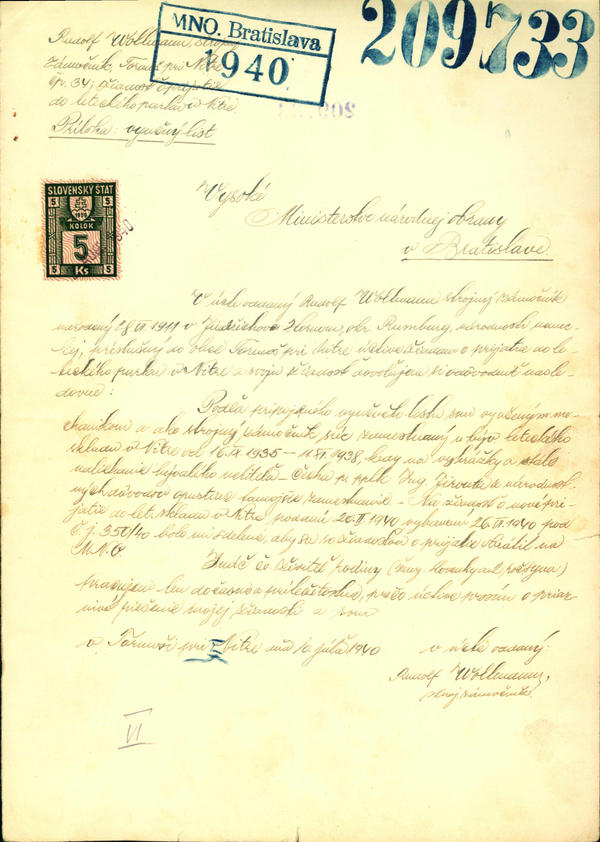 MNO. Bratislava
1940
209733
Rudolf Wollmann, strojný
zámočník, Tormoš pri Nitre
čp. 34; žiadosť o prijatie
do leteckého parku v Nitre.
Príloha: výučný list
SLOVENSKÝ ŠTÁT
5 5
KOLOK
5
5 Ks 5
Vysoké
Ministerstvo národnej obrany
v Bratislave
V úcte oddaný Rudolf Wollmann strojný zámočník
narodený 1911 v okr. Rumburg, národnosti neme-
ckej, príslušný do obce Tormoš pri Nitre úctive žiadam o prijatie do le-
teckého parku v Nitre a svoju žiadosť dovoľujem si odôvodniť nasle-
dovne:
Podľa pripojeného výučného listu som vyučeným me-
chanikom a ako strojný zámočník, súc zamestnaný u býv. leteckého
skladu v Nitre od 16.IX 1935 – 11.XI. 1938, kedy na vyhrážky a stále
naliehanie bývalého veliteľa – Čecha pplk. Ing. z národnost-
ných dôvodov opustil tamojšie zamestnanie – Na žiadosť o nové pri-
jatie do let. skladu v Nitre podanú 20.II 1940 vybavenú 26.II 1940 pod
č. j. 350/40 bolo mi sdelené, aby som so žiadosťou o prijatie obrátil na
M.N.O
čo živiteľ rodiny (ženy Slovenky a
pracujem len dočasne a príležitostne, prečo úctive prosím o priaz-
nivé riešenie mojej žiadosti a som
v Tormoši pri Nitre dňa 10. júla 1940
v úcte oddaný:
Rudolf Wollmann,
stroj. zámočník
VI